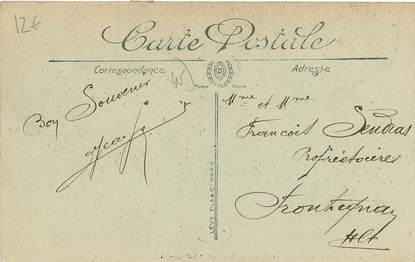 12€
Carte Postale
Correspondance
Adresse
45
Bon Souvenir
Mme et Mme
François Sendras
Propriétaires
LEVY FILS & Cie PARIS